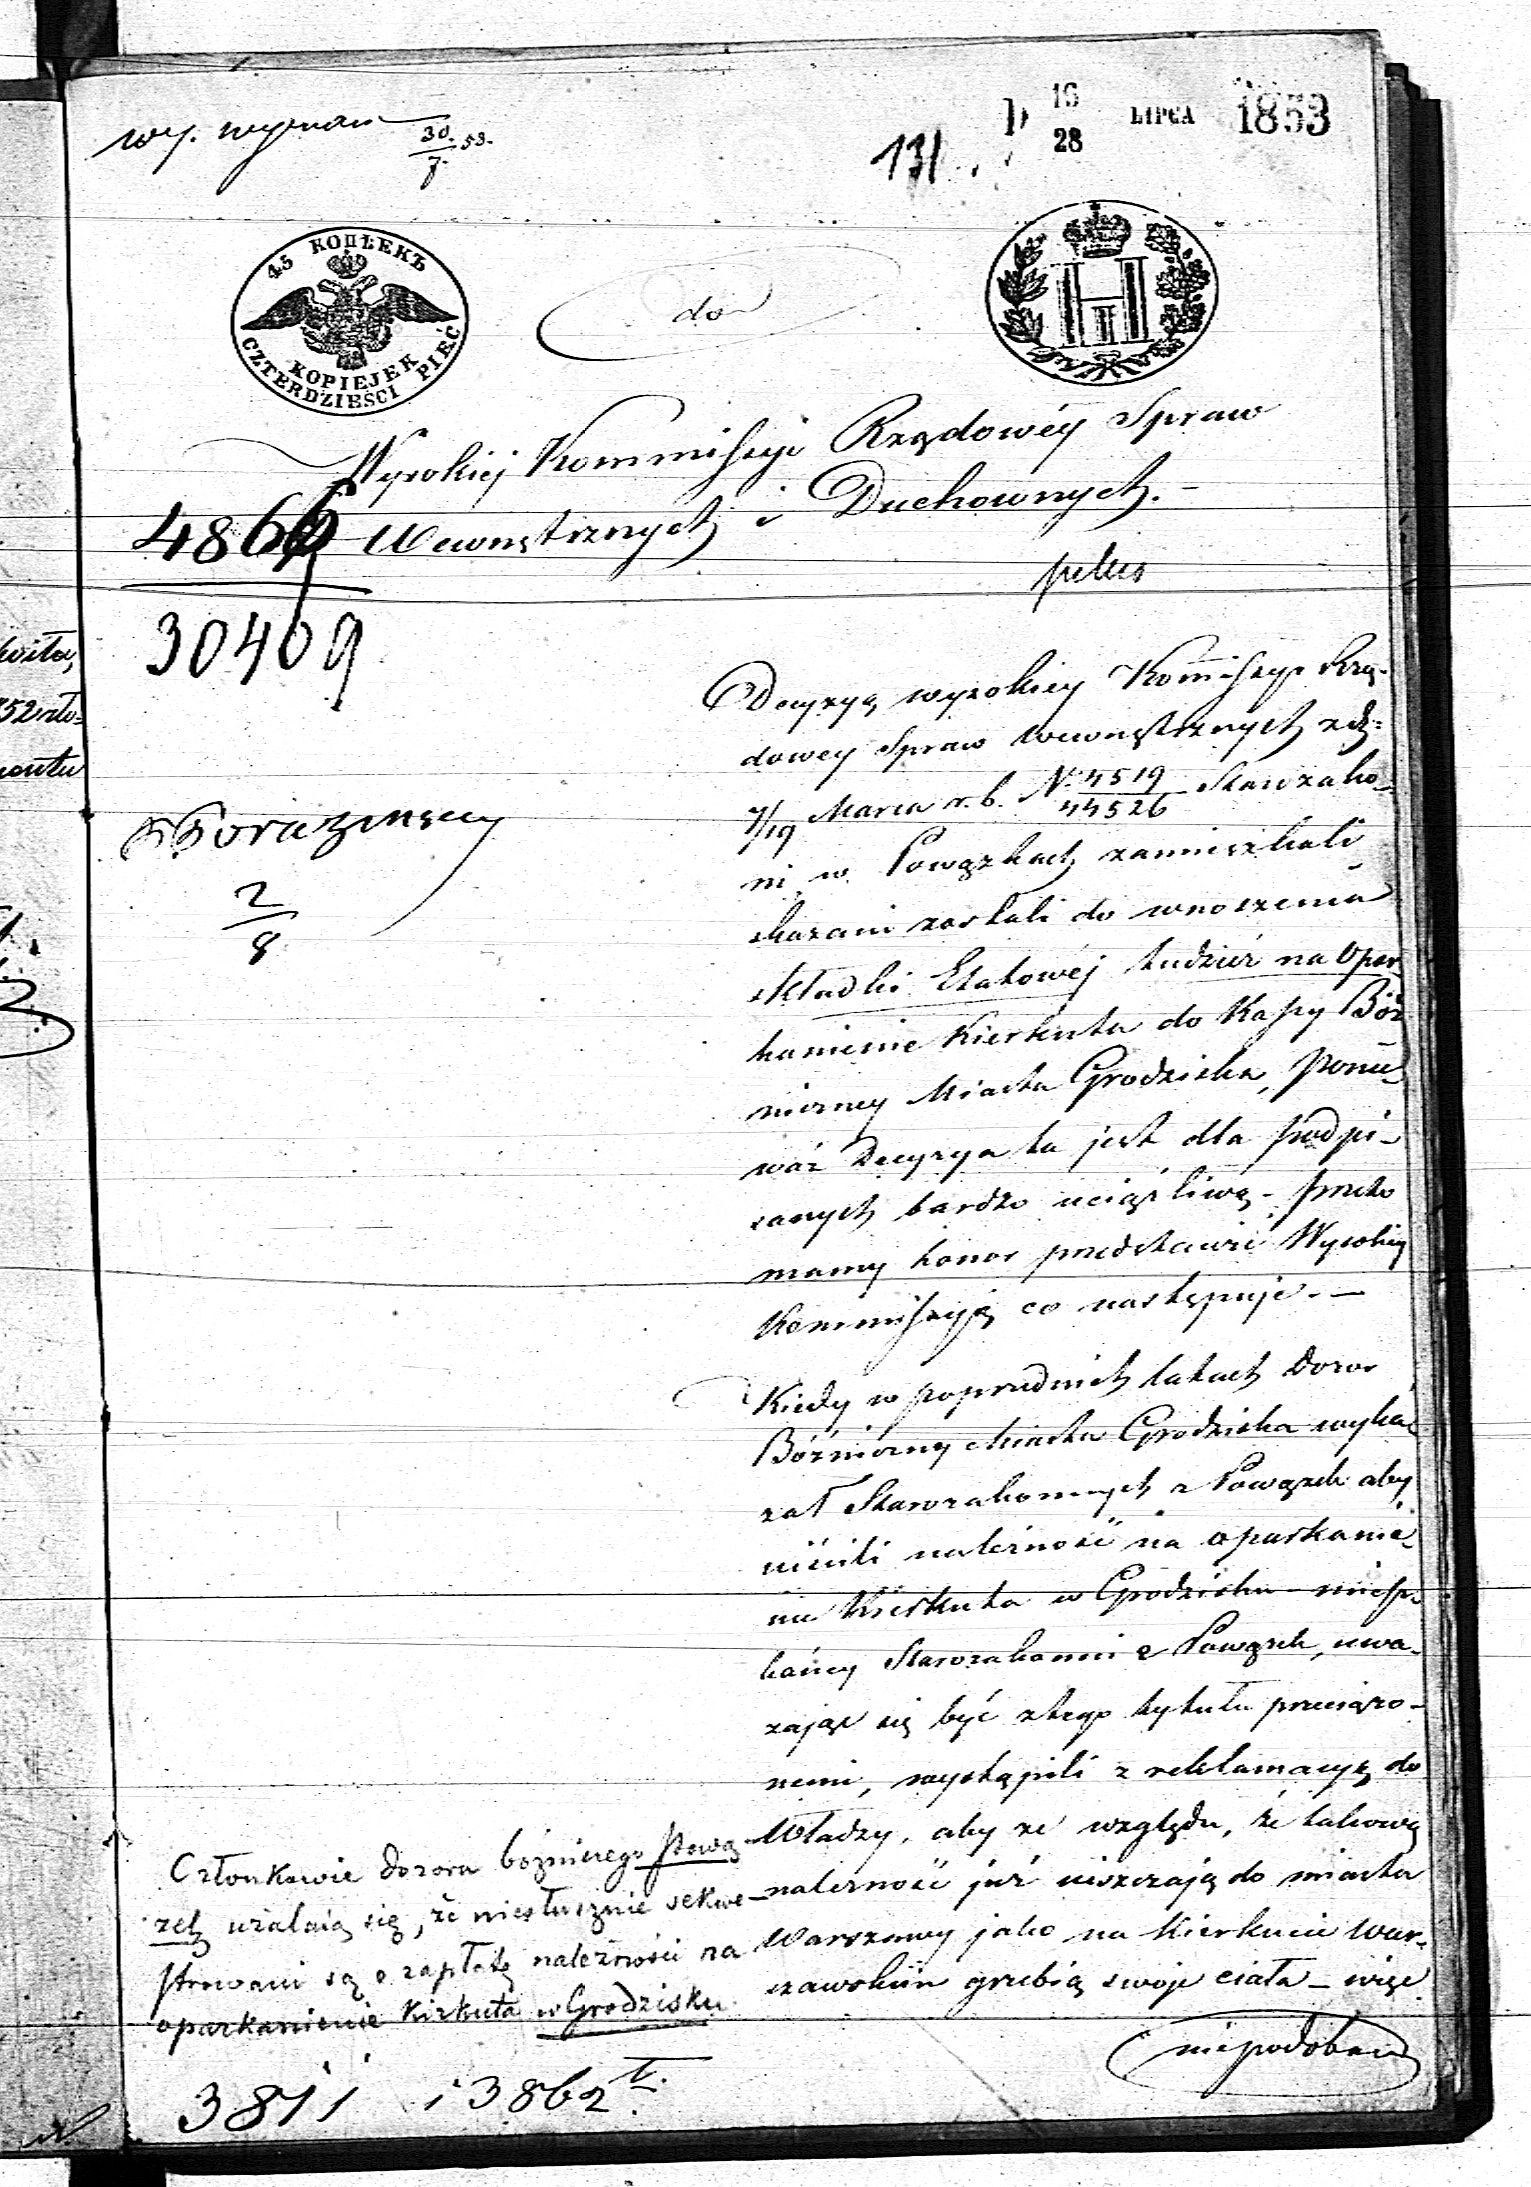 wy.
30/7 53.
131
D 16/28 LIPCA 1853
45 КОПѢЕКЪ
KOPIEJEK
CZTERDZIEŚCI PIĘĆ
do
H I
Wysokiej Kommissyi Rządowéy Spraw
Wewnętrznych i Duchownych.-
4866
30409
Decyzyą wysokiey Kommissyi Rzą-
dowey Spraw Wewnętrznych z d:
7/19 Marca r. b. N. 4519/44526 Starozako-
ni w Powązkach zamieszkali
skazani zostali do wnoszenia
składki Etatowéj tudzież na Opar
kanienie Kierkuta do Kassy Bóż
niczney Miasta Grodziska, ponie
waż Decyzya ta jest dla podpi-
sanych bardzo uciążliwą - przeto
mamy honor przedstawić Wysokiey
Kommissyią co następuje.-
2/8
Kiedy w poprzednich latach Dozor
Bóżniczny Miasta Grodziska wyka
zał Starozakonnych z Powązek aby
uiścili należność na oparkanie-
nie Kierkuta w Grodzisku - miesz-
kańcy Starozakonni z Powązek, uwa-
zając się być z tego tytułu przeciążo-
nemi, wystąpili z reklamacyą do
Władzy, aby ze względu, że takową
należność już uiszczają do miasta
Warszawy jako na Kierkucie War-
szawskim grzebią swoje ciała - więc
niepodobna
Członkowie Dozoru bóżniczego Pową
zek użalaią się, że niesłusznie sekwe-
strowani są o zapłatę należności za
oparkanienie Kirkuta w Grodzisku
3811 i 3862
koita,
52